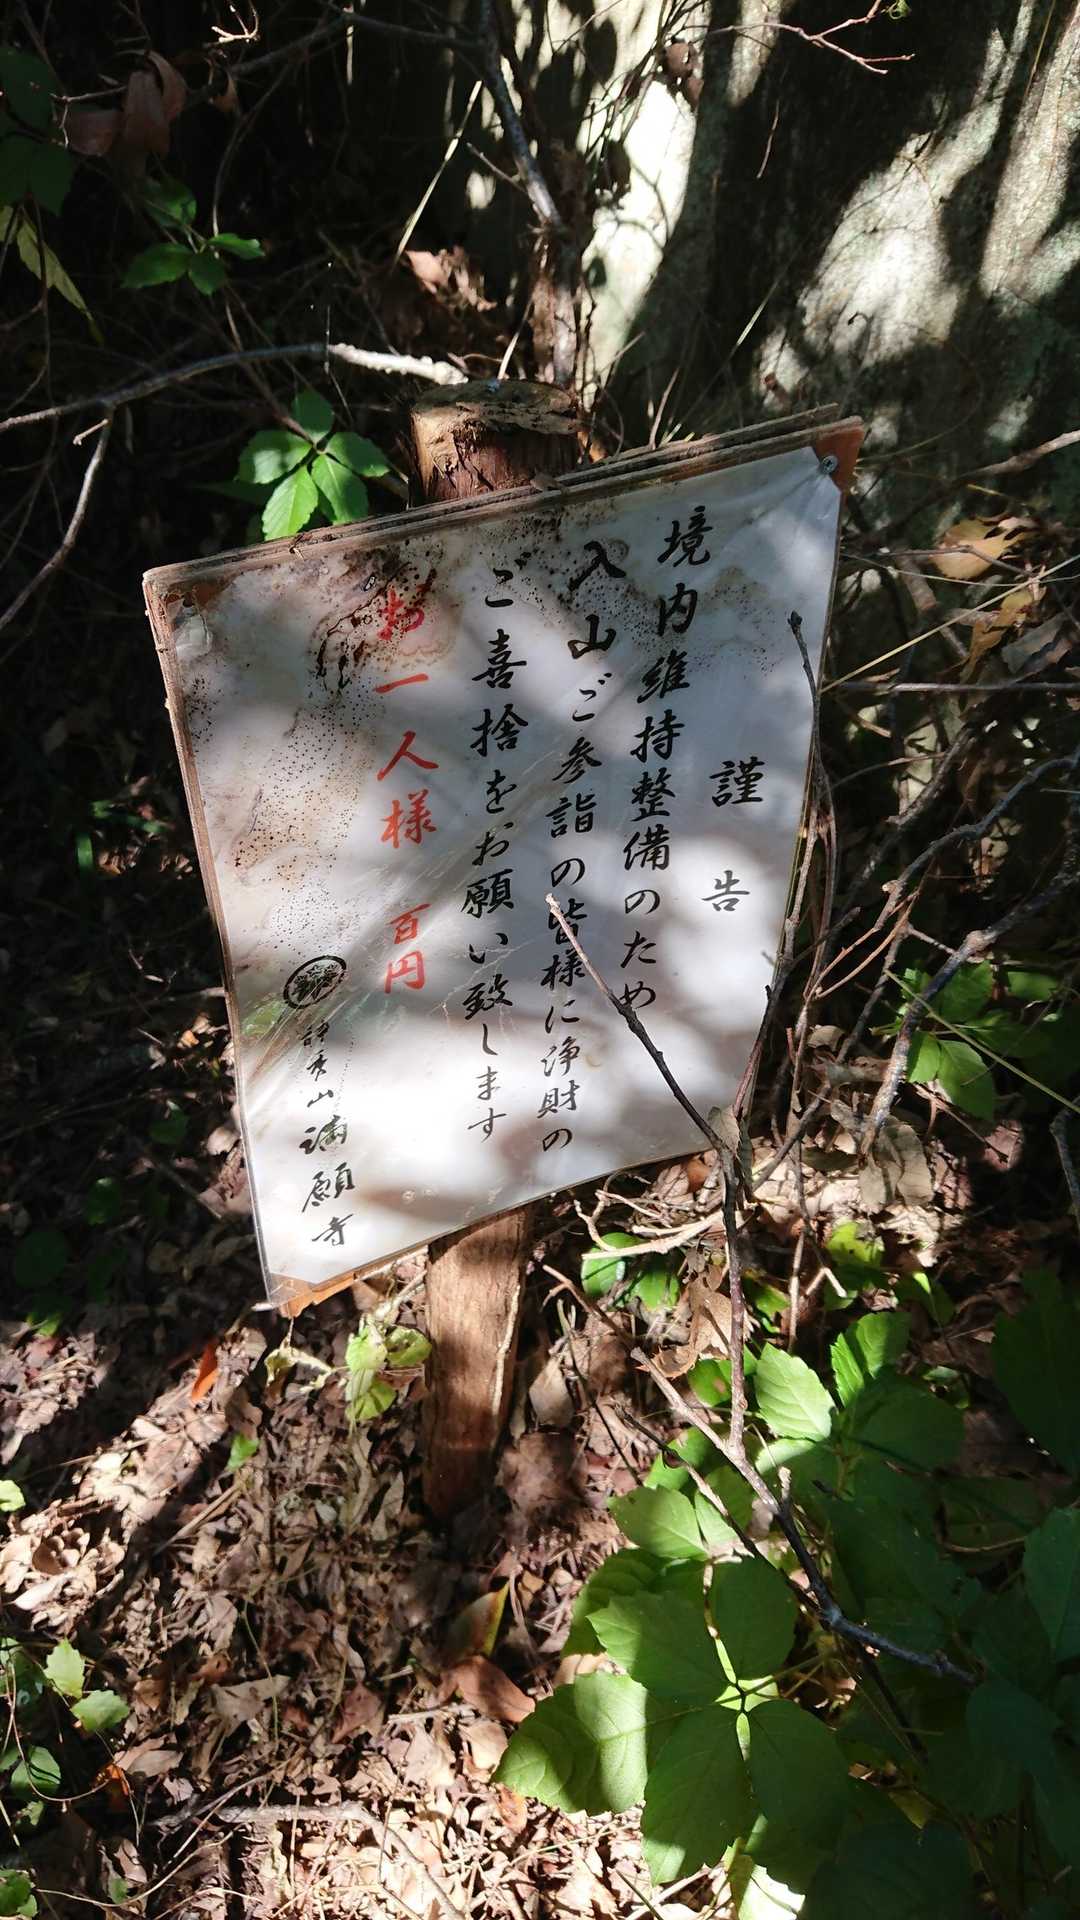 謹告
境内維持整備のため
入山ご参詣の皆様に浄財の
ご喜捨をお願い致します
お一人様 百円
山満願寺